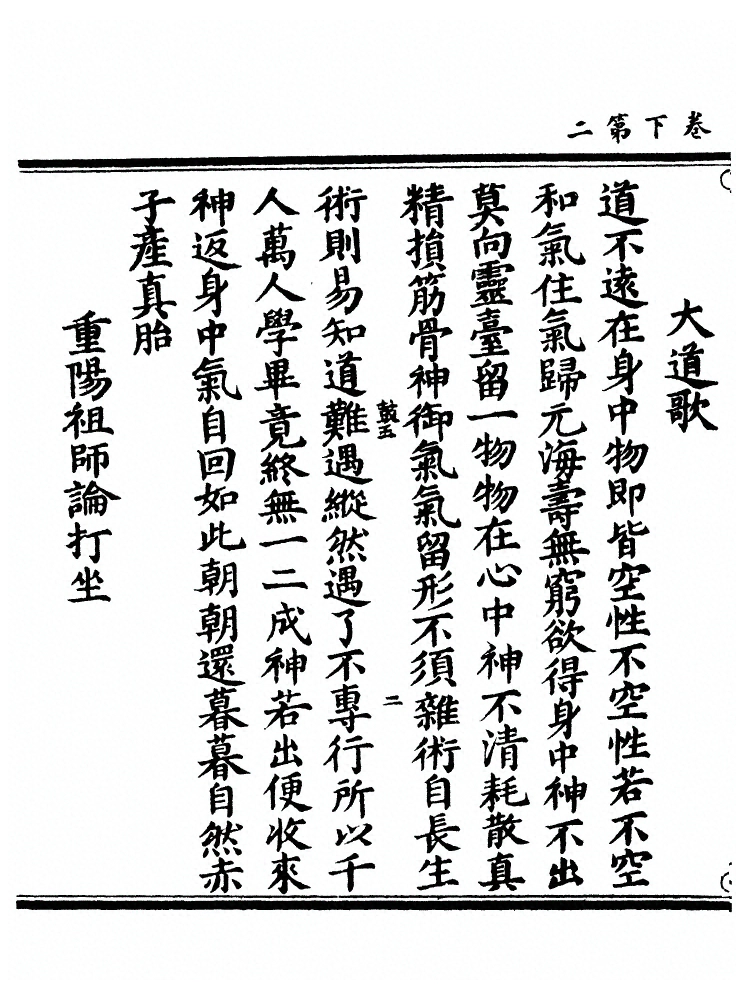 卷下第二
大道歌
道不遠在身中物即皆空性不空性若不空
和氣住氣歸元海壽無窮欲得身中神不出
莫向靈臺留一物物在心中神不清耗散真
精損筋骨神御氣氣留形不須雜術自長生
鼓五
二
術則易知道難遇縱然遇了不專行所以千
人萬人學畢竟終無一二成神若出便收來
神返身中氣自回如此朝朝還暮暮自然赤
子產真胎
重陽祖師論打坐